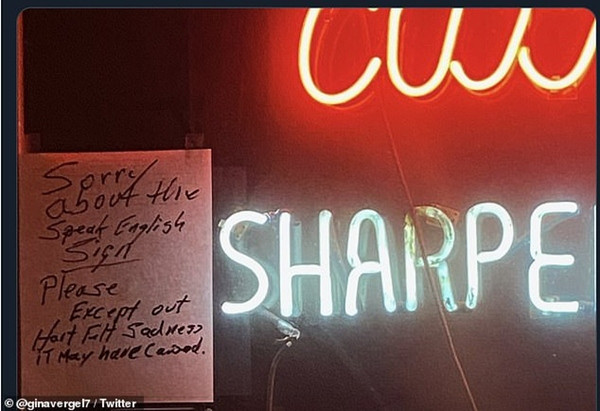 SHARPE
Sorry
about the
Speak English
Sign
Please
Except out
Hart Felt Sadness
IT May have Caused.
© @ginavergel7 / Twitter